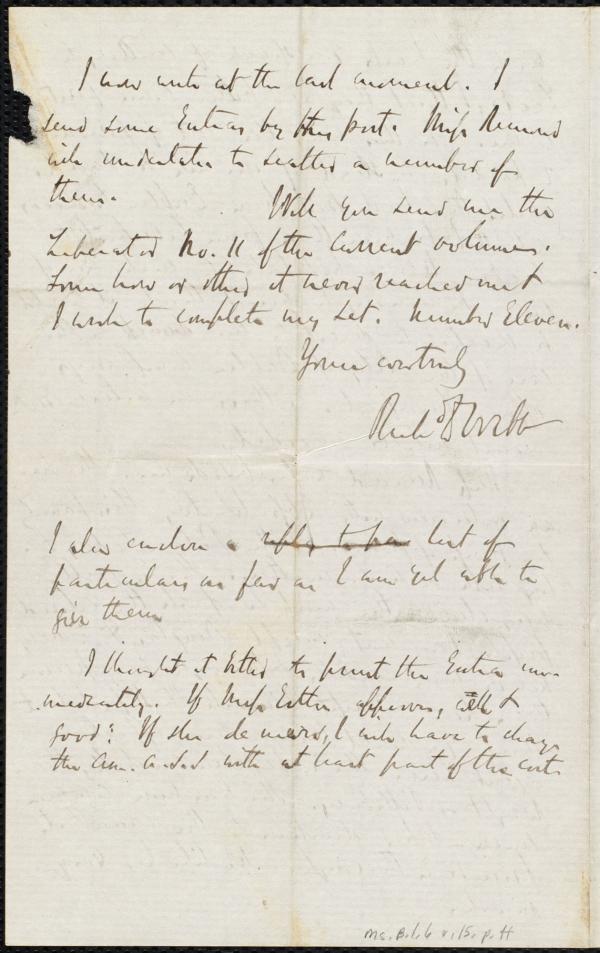 I now write at the last moment. I
send some Extras by this post. Miss Remond
will undertake to scatter a number of
them.
Will you send me the
Liberator No. 11 of the current volume.
Some how or other it never reached me &
I wish to complete my set. Number Eleven.
Yours ever truly
Rich^d D Webb
I also enclose a list of
particulars as far as I am yet able to
give them
I thought it better to print the Extra im-
mediately. If Miss Estlin approves, well &
good: If she demurs, I will have to charge
the Am. A. S. Soc with at least part of the cost.
Ms. B.1.6 v.15, p.